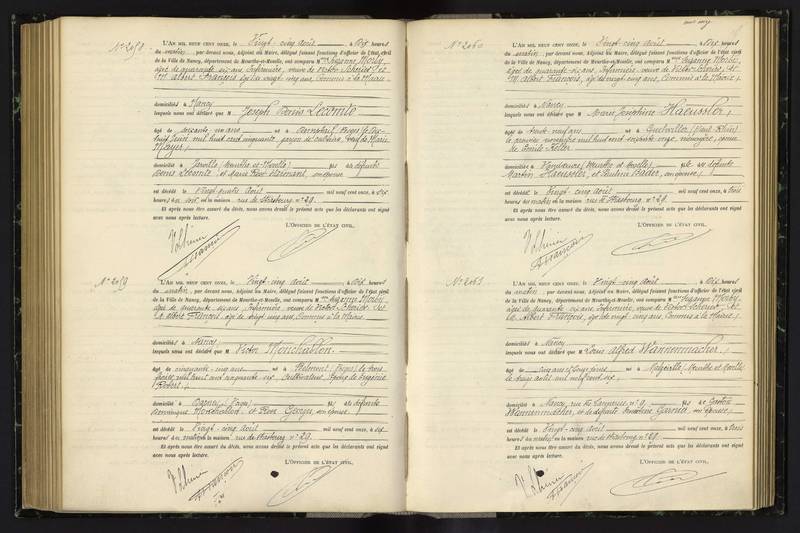 N° 2058
L'AN MIL NEUF CENT ONZE, le Vingt-cinq août à dix heures
du matin, par devant nous, Adjoint au Maire, délégué faisant fonctions d'officier de l'état civil
de la Ville de Nancy, département de Meurthe-et-Moselle, ont comparu M
âgée de quarante six ans, infirmière, veuve de Victor
et Albert François, âgé de vingt cinq ans, Commis à la Mairie
domiciliés à Nancy
lesquels nous ont déclaré que M Joseph Denis Lecomte
âgé de soixante un ans né à
domicilié à Jarville (Meurthe et Moselle) fils de défunts
Denis Lecomte et Marie Rose
est décédé le Vingt quatre août mil neuf cent onze, à six
heures du soir en la maison rue de Strasbourg n° 29.
Et après nous être assuré du décès, nous avons dressé le présent acte que les déclarants ont signé
avec nous après lecture.
L'OFFICIER DE L'ÉTAT CIVIL,
N° 2059
L'AN MIL NEUF CENT ONZE, le Vingt-cinq août à dix heures
du matin, par devant nous, Adjoint au Maire, délégué faisant fonctions d'officier de l'état civil
de la Ville de Nancy, département de Meurthe-et-Moselle, ont comparu M
âgée de quarante six ans, infirmière, veuve de Victor
et Albert François, âgé de vingt cinq ans, Commis à la Mairie
domiciliés à Nancy
lesquels nous ont déclaré que M Victor Monchablon
âgé de cinquante cinq ans né à
mil huit cent cinquante six, cultivateur, époux de Eugénie
Robert
domicilié à (Vosges) fils de défunts
Dominique Monchablon et Rose Georges, son épouse
est décédé le Vingt-cinq août mil neuf cent onze, à six
heures du matin en la maison rue de Strasbourg n° 29.
Et après nous être assuré du décès, nous avons dressé le présent acte que les déclarants ont signé
avec nous après lecture.
L'OFFICIER DE L'ÉTAT CIVIL,
N° 2060
L'AN MIL NEUF CENT ONZE, le Vingt-cinq août à dix heures
du matin, par devant nous, Adjoint au Maire, délégué faisant fonctions d'officier de l'état civil
de la Ville de Nancy, département de Meurthe-et-Moselle, ont comparu M
âgée de quarante six ans, infirmière, veuve de Victor
et Albert François, âgé de vingt cinq ans, Commis à la Mairie
domiciliés à Nancy
lesquels nous ont déclaré que M Marie Joséphine Haeussler
âgée de trente neuf ans née à (Haut-Rhin)
mil huit cent soixante onze, ménagère, épouse
de Emile Keller
domiciliée à Vandœuvre (Meurthe et Moselle) fille de défunts
Martin Haeussler, et Pauline Bader, son épouse
est décédée le Vingt-cinq août mil neuf cent onze, à trois
heures du matin en la maison rue de Strasbourg n° 29.
Et après nous être assuré du décès, nous avons dressé le présent acte que les déclarants ont signé
avec nous après lecture.
L'OFFICIER DE L'ÉTAT CIVIL,
N° 2061
L'AN MIL NEUF CENT ONZE, le Vingt-cinq août à dix heures
du matin, par devant nous, Adjoint au Maire, délégué faisant fonctions d'officier de l'état civil
de la Ville de Nancy, département de Meurthe-et-Moselle, ont comparu M
âgée de quarante six ans, infirmière, veuve de Victor
et Albert François, âgé de vingt cinq ans, Commis à la Mairie
domiciliés à Nancy
lesquels nous ont déclaré que M Louis Alfred Wannenmacher
âgé de cinq ans né à Malzéville (Meurthe et Moselle
le août mil neuf cent six
domicilié à Nancy, rue n° 9 fils de Gaston
Wannenmacher, et de défunte
est décédé le Vingt-cinq août mil neuf cent onze, à trois
heures du matin en la maison rue de Strasbourg n° 29.
Et après nous être assuré du décès, nous avons dressé le présent acte que les déclarants ont signé
avec nous après lecture.
L'OFFICIER DE L'ÉTAT CIVIL,